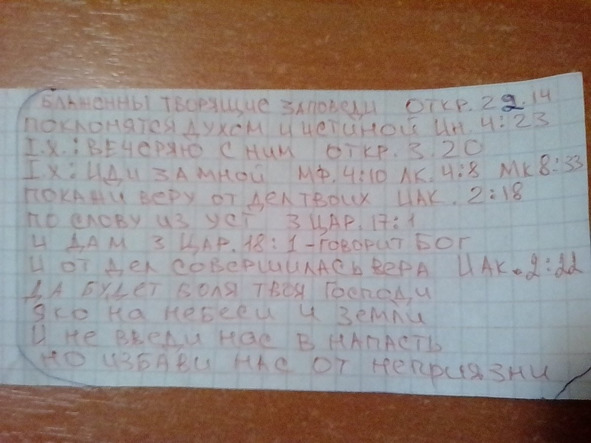 БЛАЖЕННЫ ТВОРЯЩИЕ ЗАПОВЕДИ ОТКР. 22.14
ПОКЛОНЯТСЯ ДУХОМ И ИСТИНОЙ ИН. 4:23
I.X.: ВЕЧЕРЯЮ С НИМ ОТКР. 3.20
I.X: ИДИ ЗА МНОЙ МФ. 4:10 ЛК. 4:8 МК 8:33
ПОКАЖИ ВЕРУ ОТ ДЕЛ ТВОИХ ИАК. 2:18
ПО СЛОВУ ИЗ УСТ 3 ЦАР. 17:1
И ДАМ 3 ЦАР. 18:1 - ГОВОРИТ БОГ
И ОТ ДЕЛ СОВЕРШИЛАСЬ ВЕРА ИАК. 2:22
ДА БУДЕТ ВОЛЯ ТВОЯ ГОСПОДИ
ЯКО НА НЕБЕСИ И ЗЕМЛИ
И НЕ ВВЕДИ НАС В НАПАСТЬ
НО ИЗБАВИ НАС ОТ НЕПРИЯЗНИ